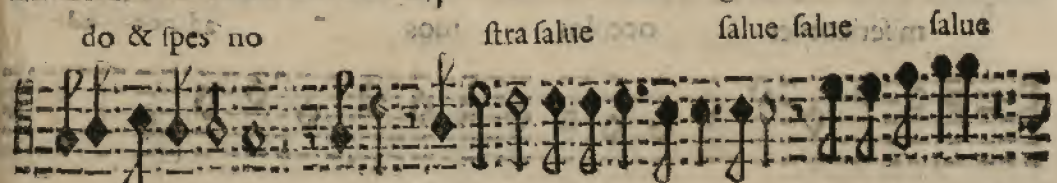 do & ſpes no ſtra ſalue ſalue ſalue ſalue